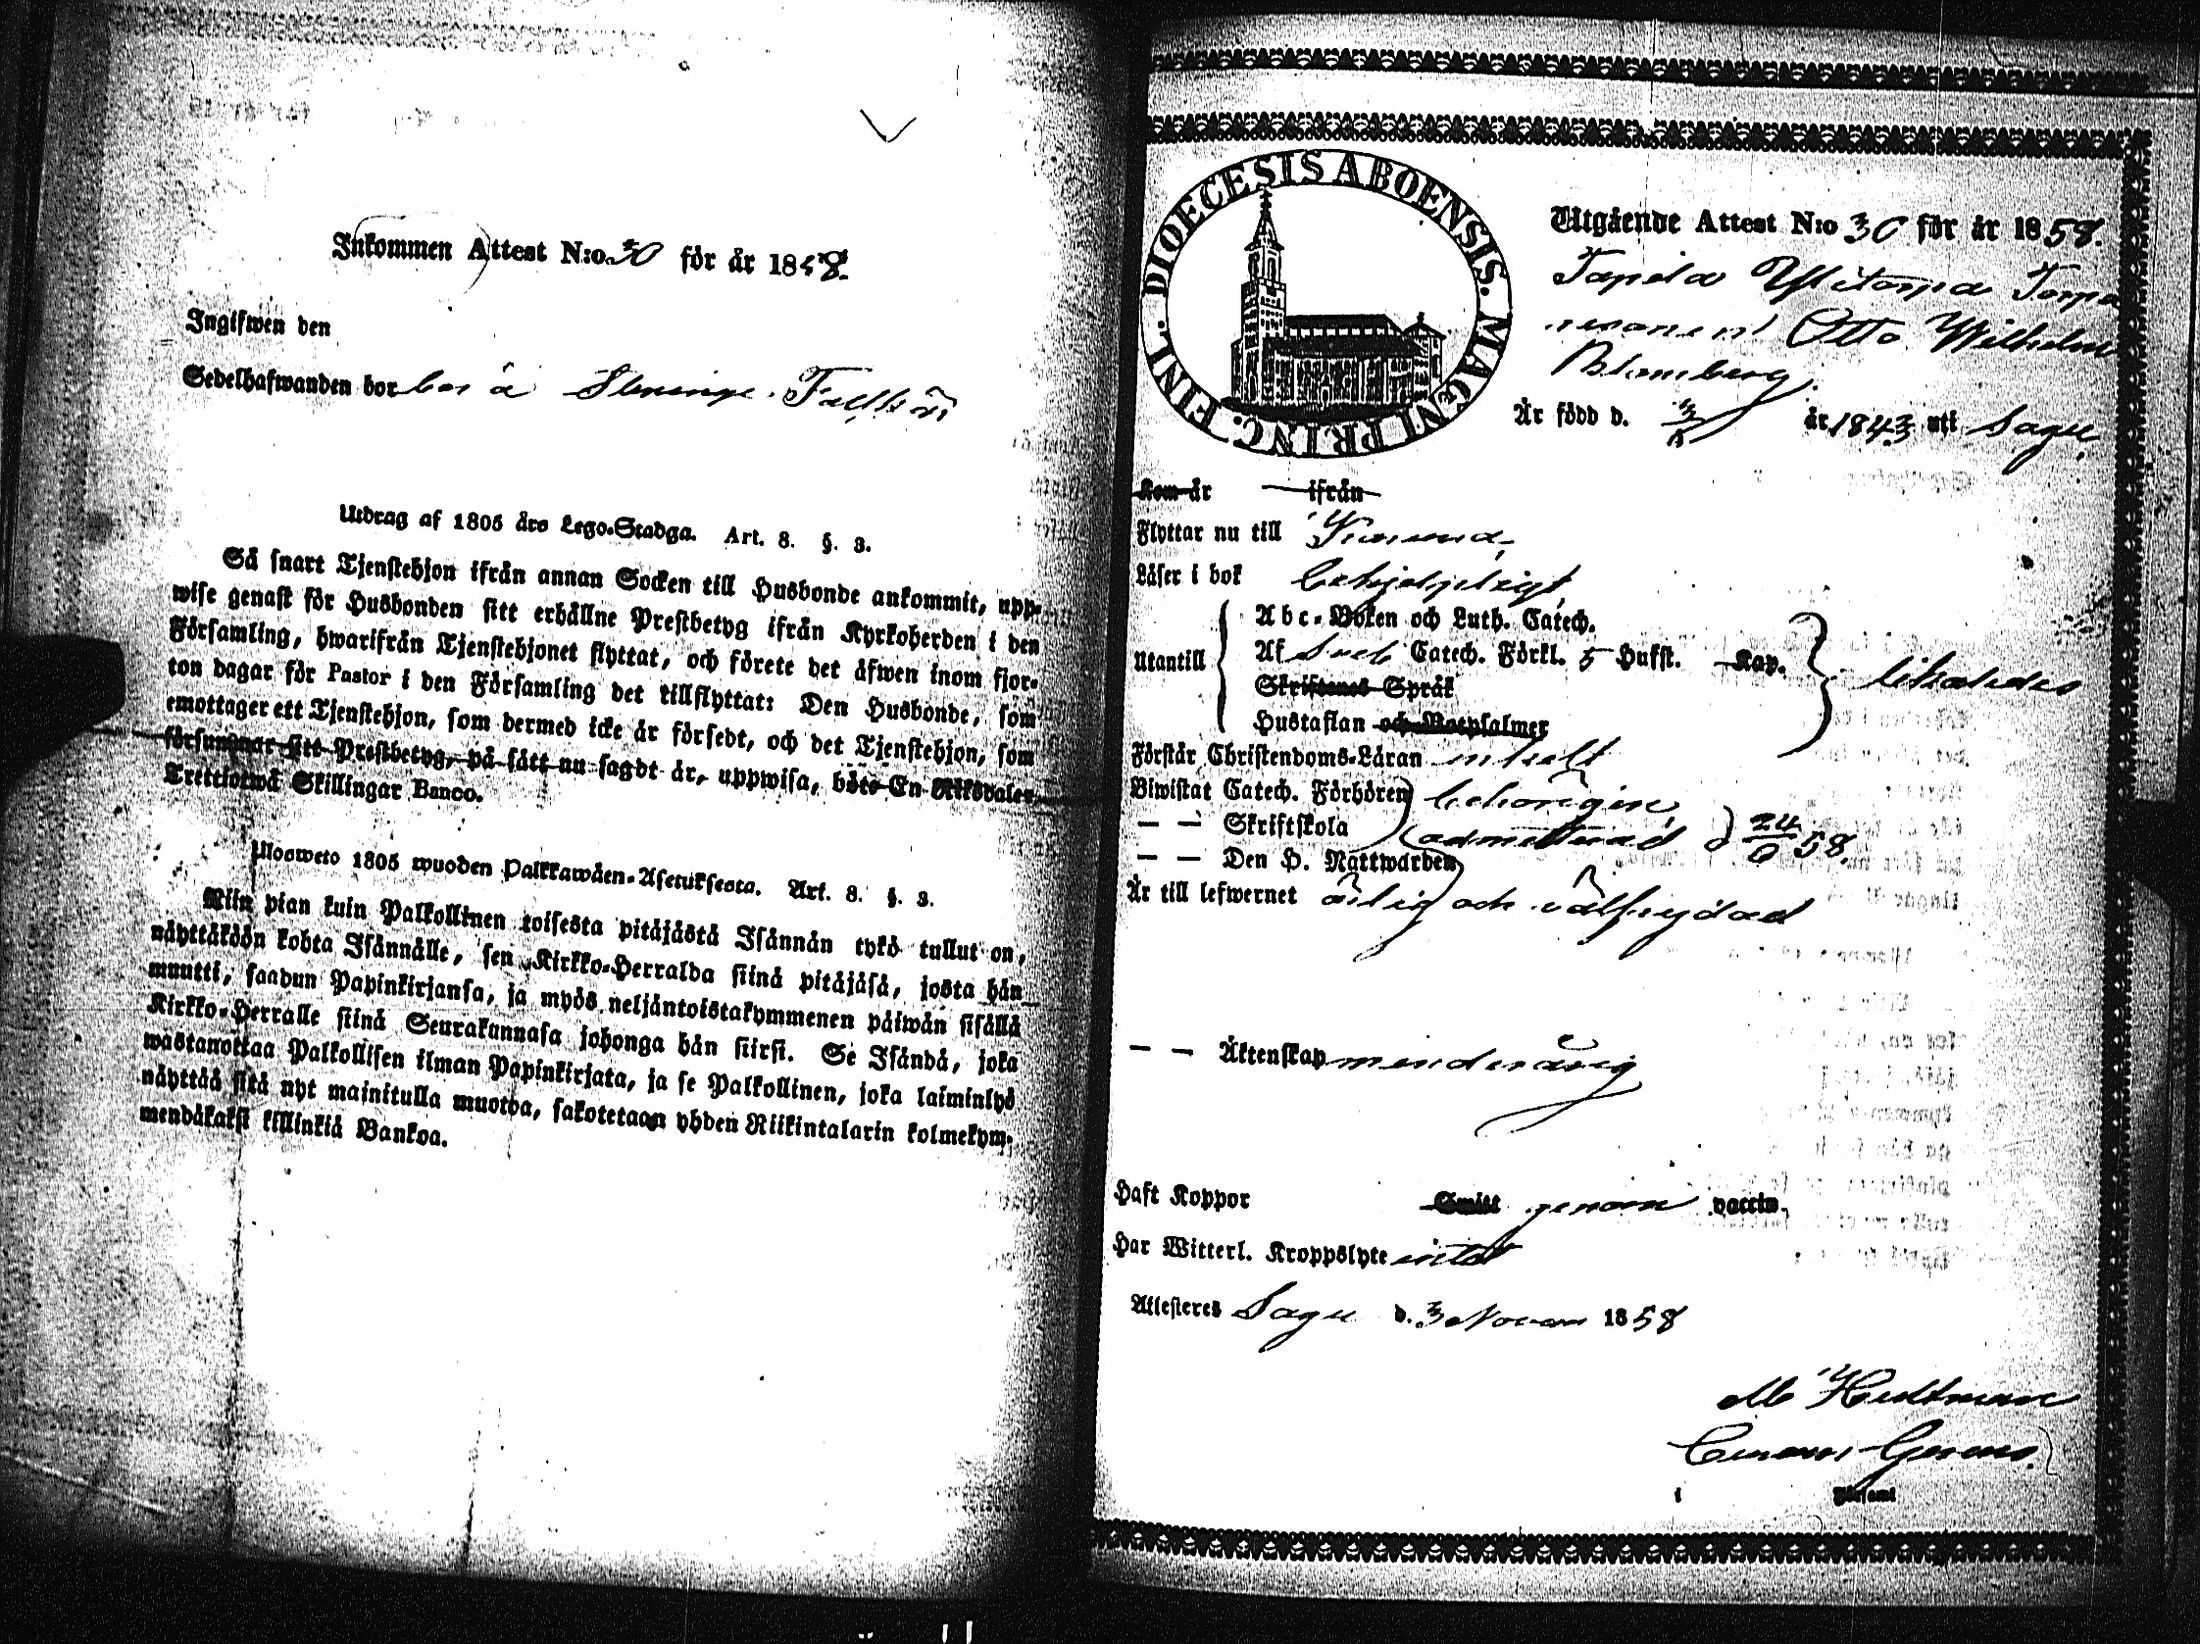 Inkommen Attest N:o 30 för år 1858.
Ingifwen den
Sedelhafwanden bor bor å
Utdrag af 1805 års Lego-Stadga. Art. 8. §. 3.
Så snart Tjenstehjon ifrån annan Socken till Husbonde ankommit, upp-
wise genast för Husbonden sitt erhållne Prestbetyg ifrån Kyrkoherden i den
Församling, hwarifrån Tjenstehjonet flyttat, och förete det äfwen inom fjor-
ton dagar för Pastor i den Församling det tillflyttat: Den Husbonde, som
emottager ett Tjenstehjon, som dermed icke är försedt, och det Tjenstehjon, som
försummar sitt Prestbetyg, på sätt nu sagdt är, uppwisa, böte En Riksdaler
Trettiotwå Skillingar Banco.
Ulosweto 1805 wuoden Palkkawäen-Asetuksesta. Art. 8. §. 3.
Niin pian kuin Palkollinen toisesta pitäjästä Isännän tykö tullut on,
näyttäköön kohta Isännälle, sen Kirkko-Herralda siinä pitäjäsä, josta hän
muutti, saadun Papinkirjansa, ja myös neljäntoistakymmenen päiwän sisällä
Kirkko-Herralle siinä Seurakunnasa johonga hän siirsi. Se Isändä, joka
wastanottaa Palkollisen ilman Papinkirjata, ja se Palkollinen, joka laiminlyö
näyttää sitä nyt mainitulla muotoa, sakotetaan yhden Riikintalarin kolmekym-
mendäkaksi killinkiä Bankoa.
DIOECESIS ABOENSIS. MAGNI PRINC. FINL.
Utgående Attest N:o 30 för år 1858.
Otto Wilhelm
Blomberg.
Är född d. år 1843 uti Sagu
Kom år ifrån
Flyttar nu till
Läser i bok
Utantill
Abc-Boken och Luth. Catech.
Af Sveb Catech. Förkl. 5 Hufst. Kap.
Skriftenes Språk
Hustaflan och Botpsalmer
Förstår Christendoms-Läran enkelt
Biwistat Catech. Förhören behörigen
— — Skriftskola admitterad d 24/6 58.
— — Den H. Nattwarden
Är till lefwernet ärlig och välfrejdad
— — Äktenskap minderårig
Haft Koppor Smitt genom vaccin.
Har Witterl. Kroppslyte intet
Attesteres Sagu d. 3 Novem 1858
Hultman
i Församl